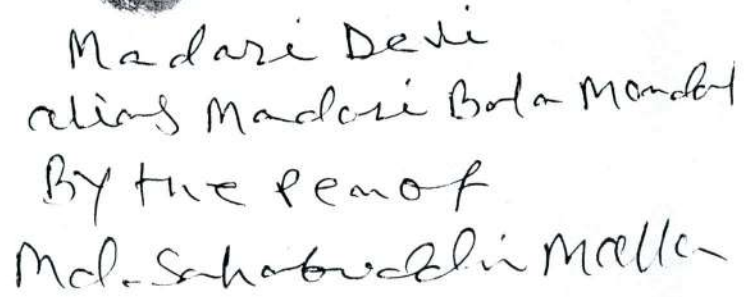 Madari Devi
alias Madari Bala Mondal
By the Pen of
Md. Sahabuddin Molla